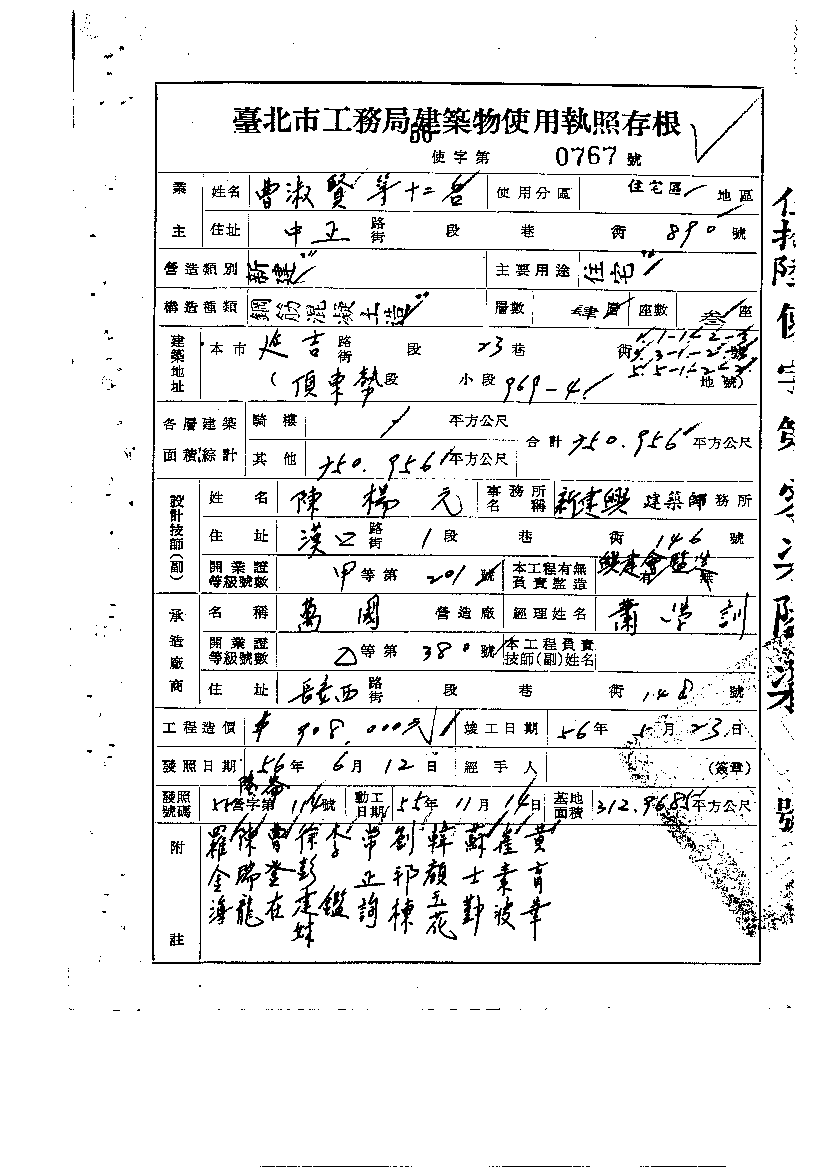 臺北市工務局建築物使用執照存根
56
使字第 0767 號
業主 姓名 曹淑賢等十二名 使用分區 住宅區 地區
住址 中正 路街 段 巷 街 890 號
營造類別 新建 主要用途 住宅
構造種類 鋼筋混凝土造 層數 肆層 座數 叁座
建築地址 本市 延吉 路街 段 23巷 街 號
(頂東勢段 小段 969-4 地號)
各層建築面積綜計 騎樓 平方公尺 合計 750.956 平方公尺
其他 750.956 平方公尺
設計技師(副) 姓名 陳楊元 事務所名稱 新建興 建築師事務所
住址 漢口 路街 1段 巷 街 146 號
開業證等級號數 甲等第 201 號 本工程有無負責監造 有 無
承造廠商 名稱 萬國 營造廠 經理姓名 蕭學訓
開業證等級號數 乙等第 380 號 本工程負責技師(副)姓名
住址 長安西 路街 段 巷 街 148 號
工程造價 $ 908,000元 竣工日期 56年 5月 23日
發照日期 56年 6月 12日 經手人 (簽章)
發照號碼 55營字第 114號 動工日期 55年 11月 14日 基地面積 312.9685平方公尺
附註
黃育華
崔素波
蘇士勤
韓顏玉花
劉邦棟
常正詢
李鑑
徐彭建妹
曹堂在
陳瑞龍
羅金海